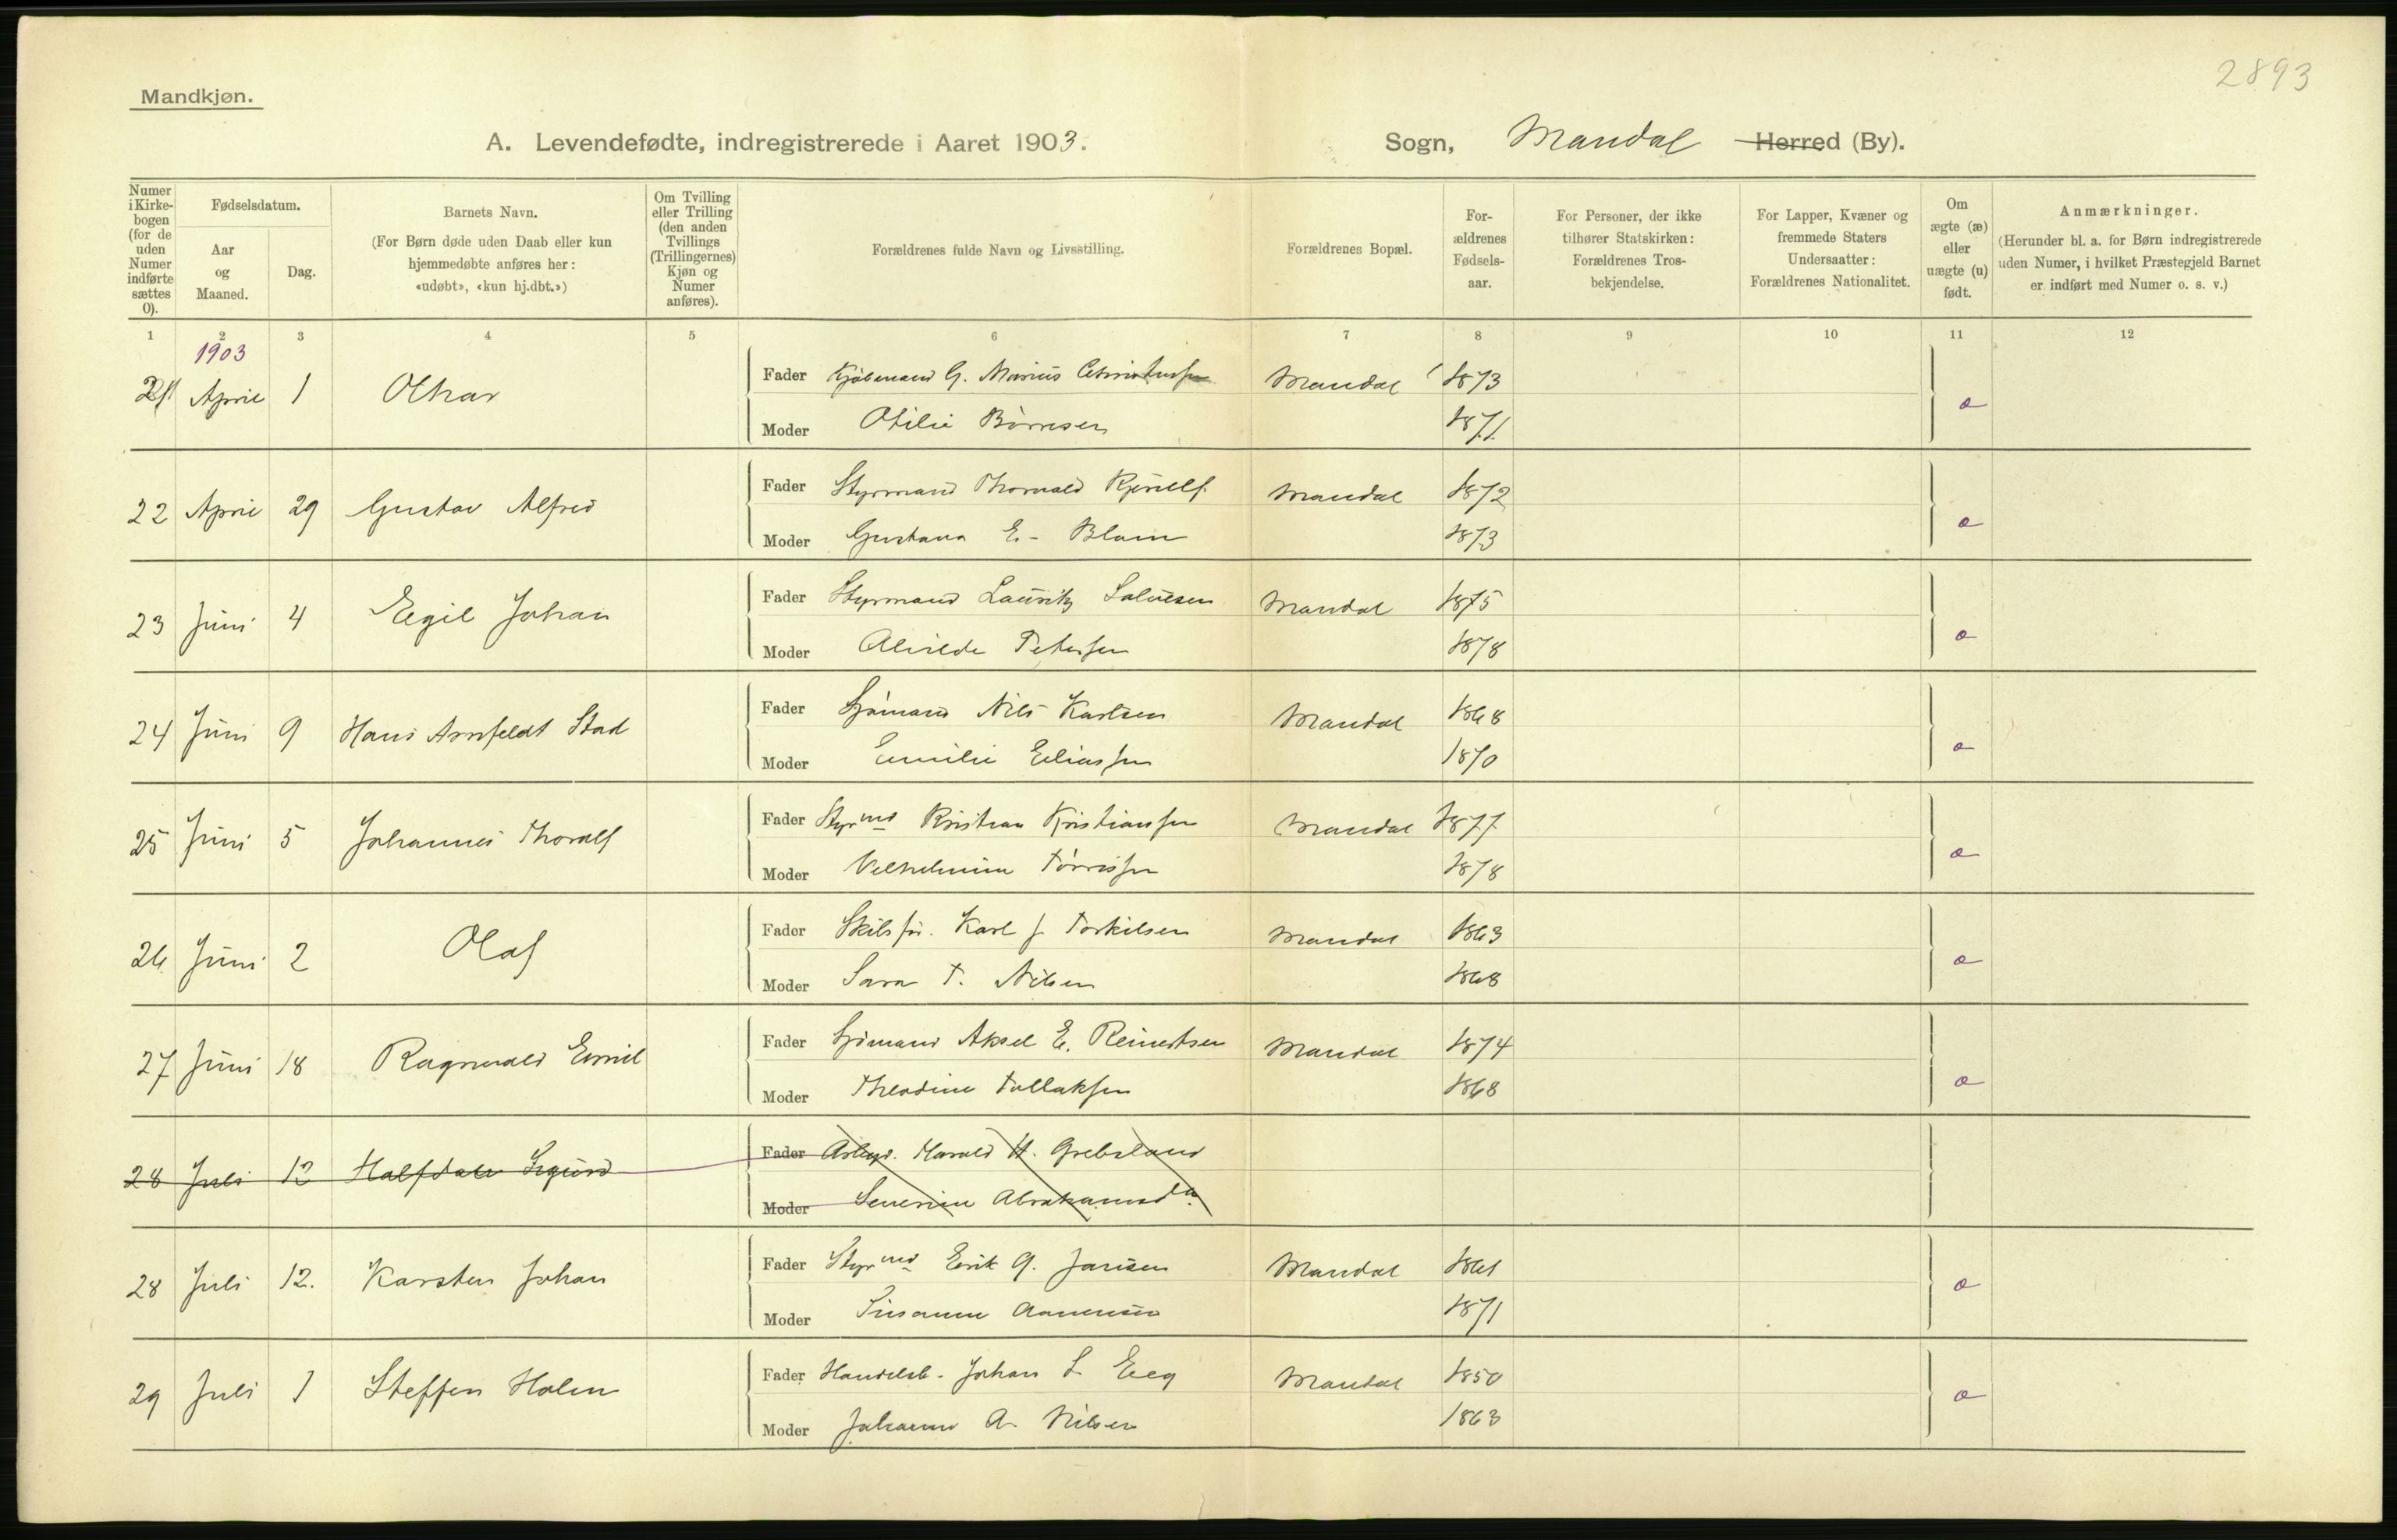 2893
Mandkjøn.
A. Levendefødte, indregistrerede i Aaret 1903. Sogn, Mandal Herred (By).
Numer i Kirke-bogen (for de uden Numer indførte sættes 0).
Fødselsdatum.
Aar og Maaned.
Dag.
Barnets Navn.
(For Børn døde uden Daab eller kun hjemmedøbte anføres her: «udøbt», «kun hj.dbt.»)
Om Tvilling eller Trilling (den anden Tvillings (Trillingernes) Kjøn og Numer anføres).
Forældrenes fulde Navn og Livsstilling.
Forældrenes Bopæl.
For-ældrenes Fødsels-aar.
For Personer, der ikke tilhører Statskirken: Forældrenes Tros-bekjendelse.
For Lapper, Kvæner og fremmede Staters Undersaatter: Forældrenes Nationalitet.
Om ægte (æ) eller uægte (u) født.
Anmærkninger.
(Herunder bl. a. for Børn indregistrerede uden Numer, i hvilket Præstegjeld Barnet er indført med Numer o. s. v.)
1 2 3 4 5 6 7 8 9 10 11 12
1903
21 April 1 Othar Fader Kjøbmand G. Marius Mandal 1873
Moder Otilie Børresen 1871
22 April 29 Gustav Alfred Fader Styrmand Thorvald Mandal 1872
Moder Gustava E. Blom 1873
23 Juni 4 Egil Johan Fader Styrmand Lauritz Salvesen Mandal 1875
Moder Alvilde Petersen 1878
24 Juni 9 Hans Arnfeldt Stad Fader Sjømand Nils Karlsen Mandal 1868
Moder Emilie Eliassen 1870
25 Juni 5 Johannes Thoralf Fader Styrmd Kristian Kristiansen Mandal 1877
Moder Vilhelmine Tørrissen 1878
26 Juni 2 Olaf Fader Skibsfør. Karl J. Torkilsen Mandal 1863
Moder Sara T. Nilsen 1868
27 Juni 18 Ragnvald Emil Fader Sjømand Aksel E. Reinertsen Mandal 1874
Moder Theodine Tallaksen 1868
28 Juli 12 Halfdan Sigurd Fader Arbeid. Harald H. Grebsland
Moder Severine Abrahamsd
28 Juli 12. Karsten Johan Fader Styrmd Erik G. Jansen Mandal 1861
Moder Susanne Aanensen 1871
29 Juli 1 Steffen Holm Fader Handelsb. Johan L. Eeg Mandal 1850
Moder Johanne A. Nilsen 1863